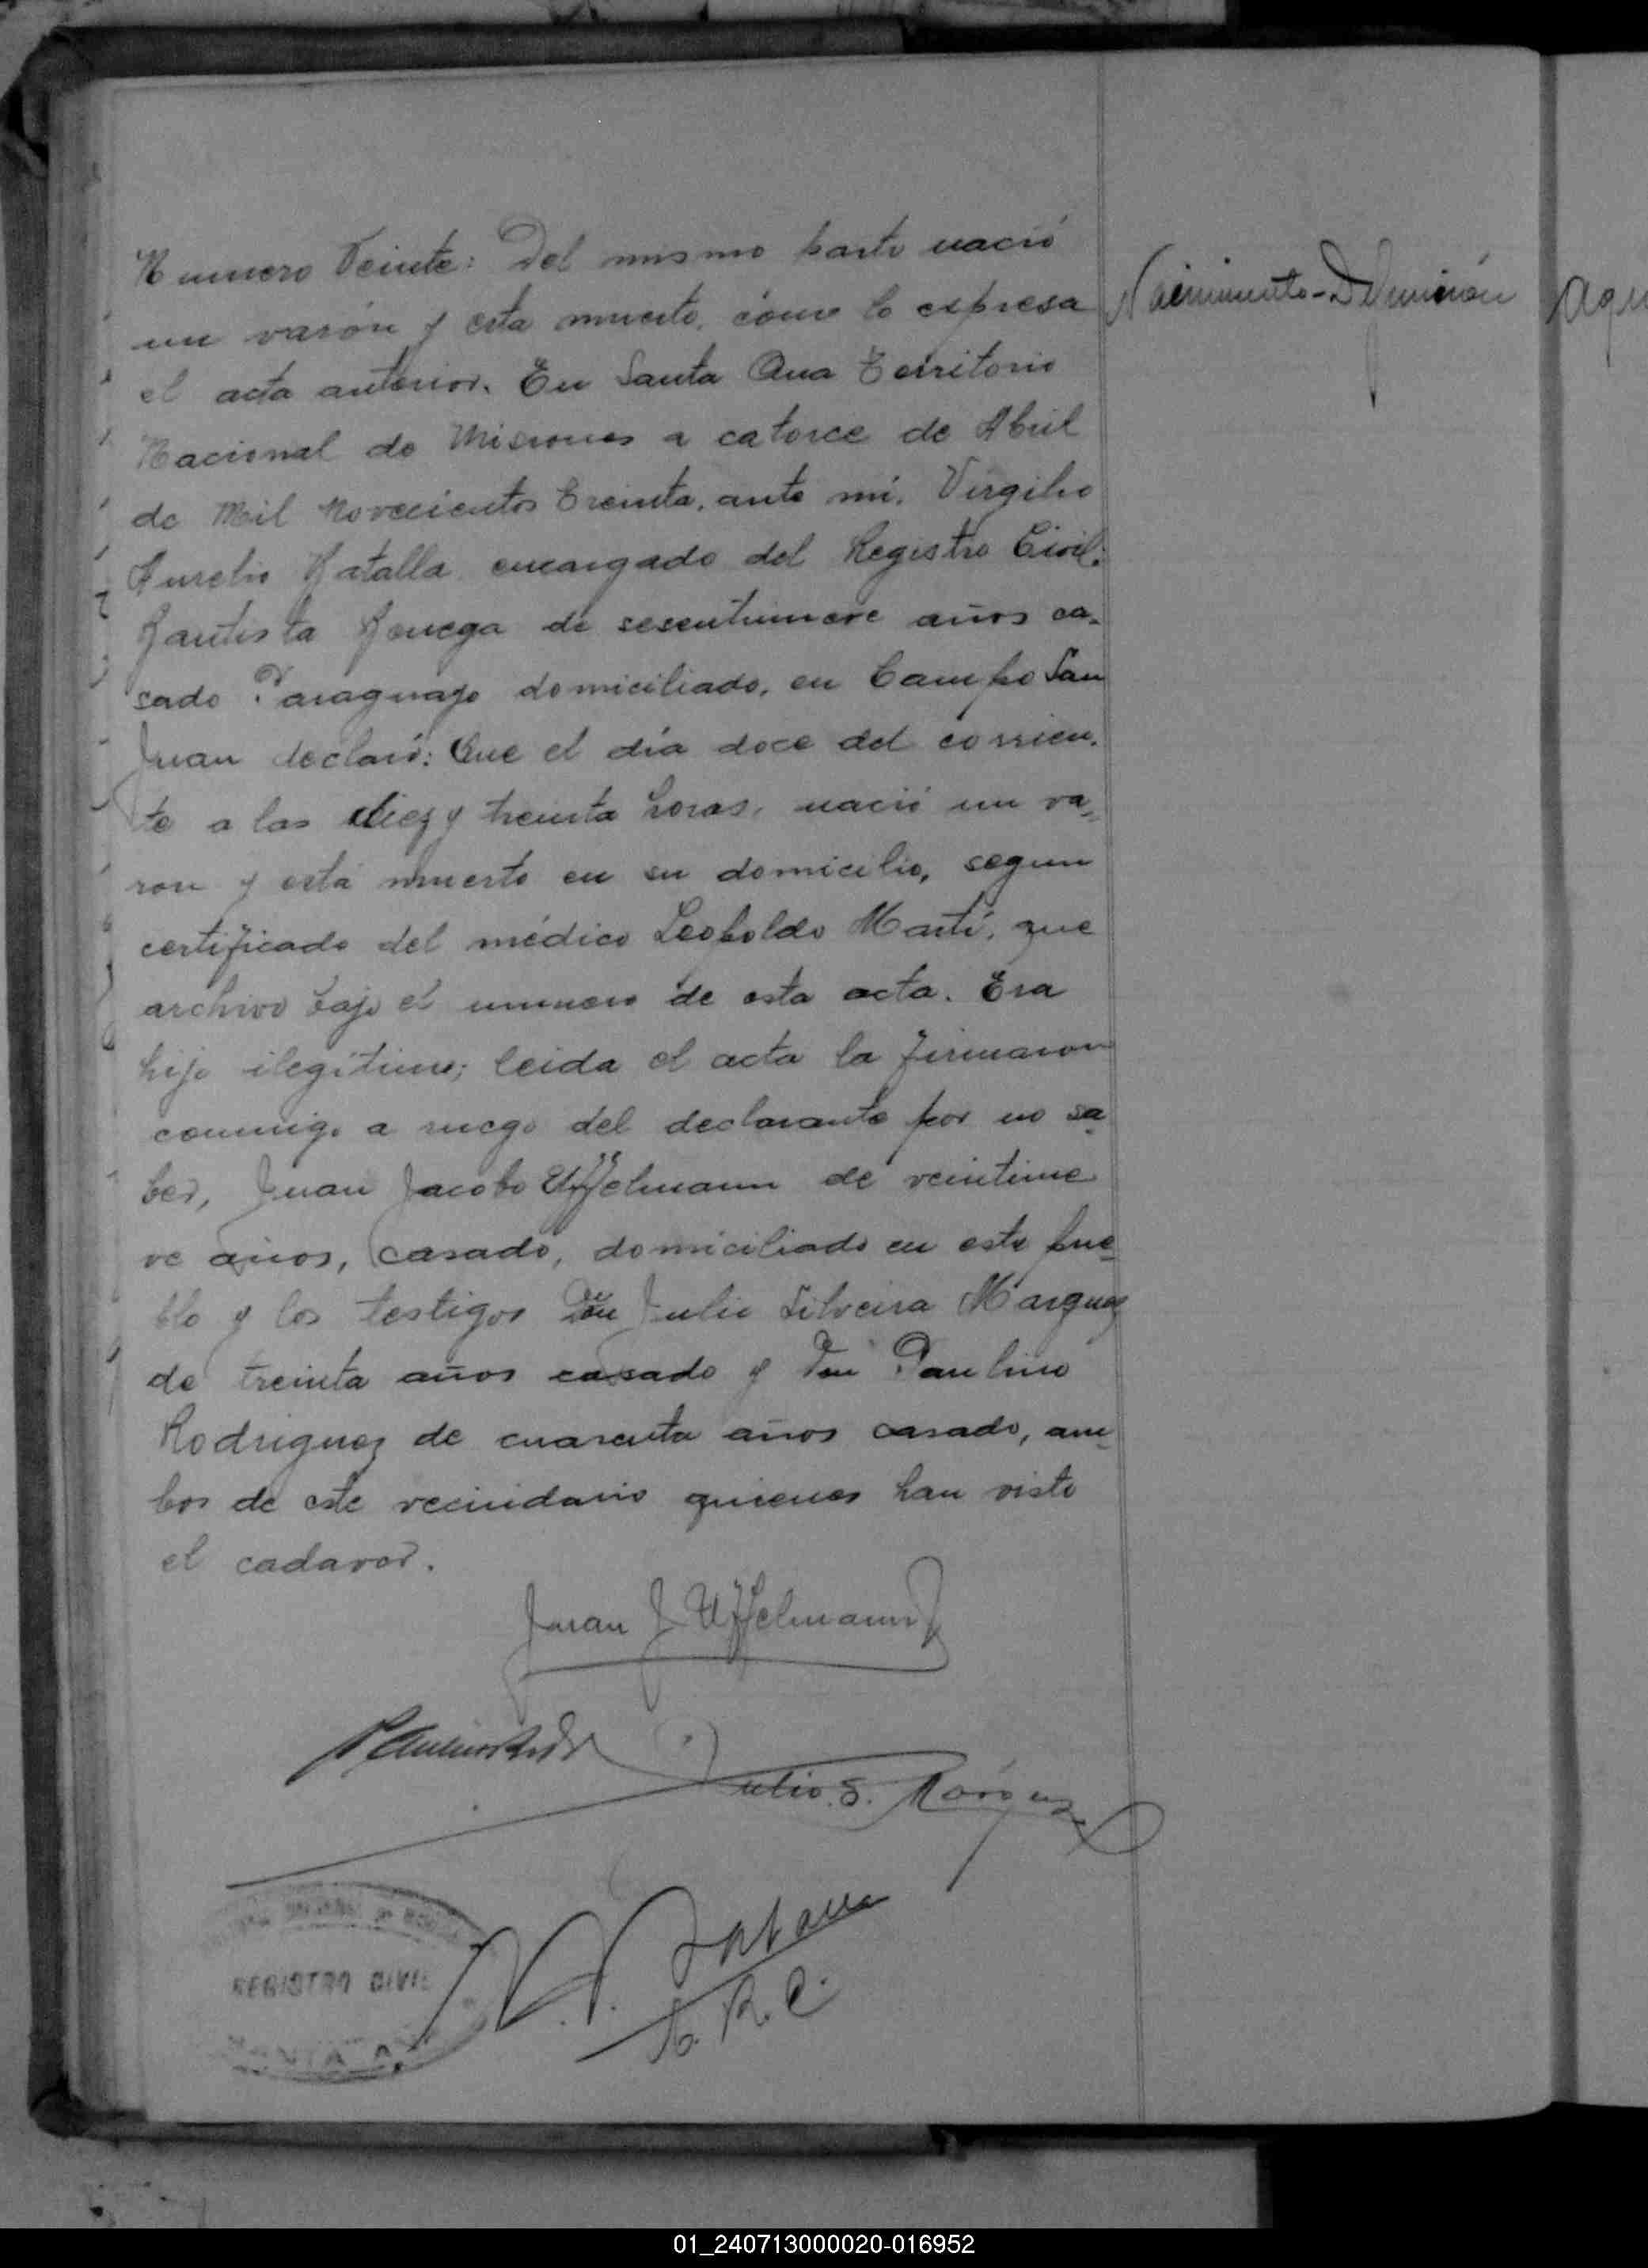 Numero Veinte: Del mismo parto nació
un varón y esta muerto, cómo lo expresa
el acta anterior. En Santa Ana Territorio
Nacional de Misiones a catorce de Abril
de Mil Novecientos Treinta, ante mi, Virgilio
Aurelio Batalla encargado del Registro Civil:
Bautista Benega de sesentinueve años ca-
sado Paraguayo domiciliado, en Campo San
Juan declaró: Que el día doce del corrien-
te a las diez y treinta horas, nació un va-
ron y está muerto en su domicilio, segun
certificado del médico Leopoldo Martí, que
archivo bajo el numero de esta acta. Era
hijo ilegítimo; leida el acta la firmaron
conmigo a ruego del declarante por no sa-
ber, Juan Jacobo Uffelmann de veintinue-
ve años, casado, domiciliado en este pue-
blo y los testigos Don Julio Silveira Marquez
de treinta años casado y Don Paulino
Rodriguez de cuarenta años casado, am-
bos de este vecindario quienes han visto
el cadaver.
Nacimiento-Defunción
Juan J. Uffelmann
Julio. S. Márquez
V. A. Batalla
E. R. C.
REGISTRO CIVIL
SANTA ANA
01_240713000020-016952